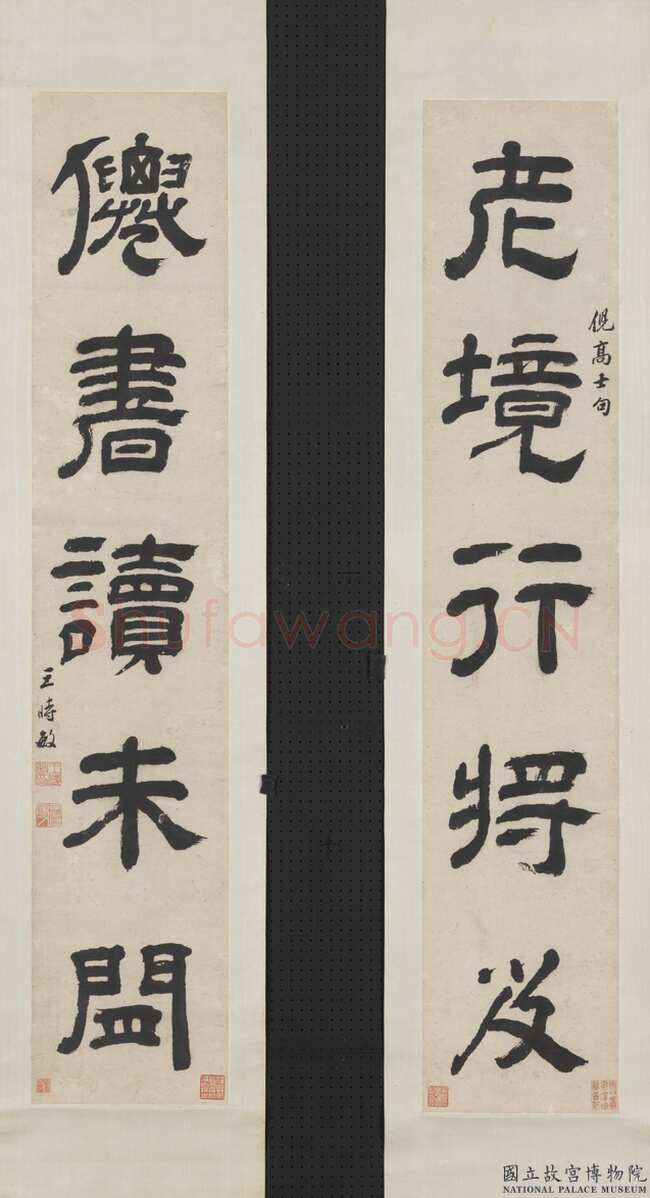 老境行將及
倪高士句
僊書讀未
王時敏
Shufawang.CN
國立故宮博物院
NATIONAL PALACE MUSEUM